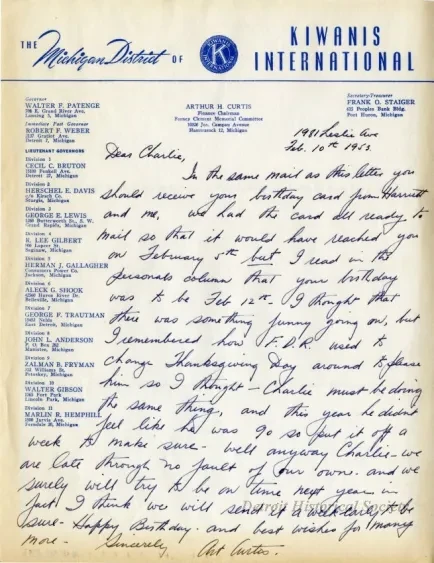 THE Michigan District OF
KIWANIS INTERNATIONAL
KIWANIS INTERNATIONAL
K
Governor
WALTER F. PATENGE
Immediate Past Governor
ROBERT F. WEBER
LIEUTENANT GOVERNORS
Division 1
CECIL C. BRUTON
Division 2
HERSCHEL E. DAVIS
Sturgis, Michigan
Division 3
GEORGE E. LEWIS
Grand Rapids, Michigan
Division 4
R. LEE GILBERT
Saginaw, Michigan
Division 5
HERMAN J. GALLAGHER
Consumers Power Co.
Jackson, Michigan
Division 6
ALECK G. SHOOK
Belleville, Michigan
Division 7
GEORGE F. TRAUTMAN
East Detroit, Michigan
Division 8
JOHN L. ANDERSON
Manistee, Michigan
Division 9
ZALMAN B. FRYMAN
Petoskey, Michigan
Division 10
WALTER GIBSON
Lincoln Park, Michigan
Division 11
MARLIN R. HEMPHILL
Ferndale 20, Michigan
ARTHUR H. CURTIS
Finance Chairman
Forney Clement Memorial Committee
Hamtramck 12, Michigan
Secretary-Treasurer
FRANK O. STAIGER
Peoples Bank Bldg.
Port Huron, Michigan
1981 Leslie Ave
Feb. 10th 1953.
Dear Charlie,
In the same mail as this letter you
should receive your birthday card from Harriett
and me, we had the card all ready to
mail so that it would have reached you
on February 5th but I read in the
personals column that your birthday
was to be Feb 12th - I thought that
there was something funny going on, but
I remembered how F.D.R. used to
change Thanksgiving Day around to please
him so I thought - Charlie must be doing
the same thing, and this year he didn't
feel like he was 90 so put it off a
week to make sure - well anyway Charlie - we
are late through no fault of our own. and we
surely will try to be on time next year in
fact I think we will send it a week early to be
sure - Happy Birthday. and best wishes for many
more - Sincerely Art Curtis.
Detroit Historical Society